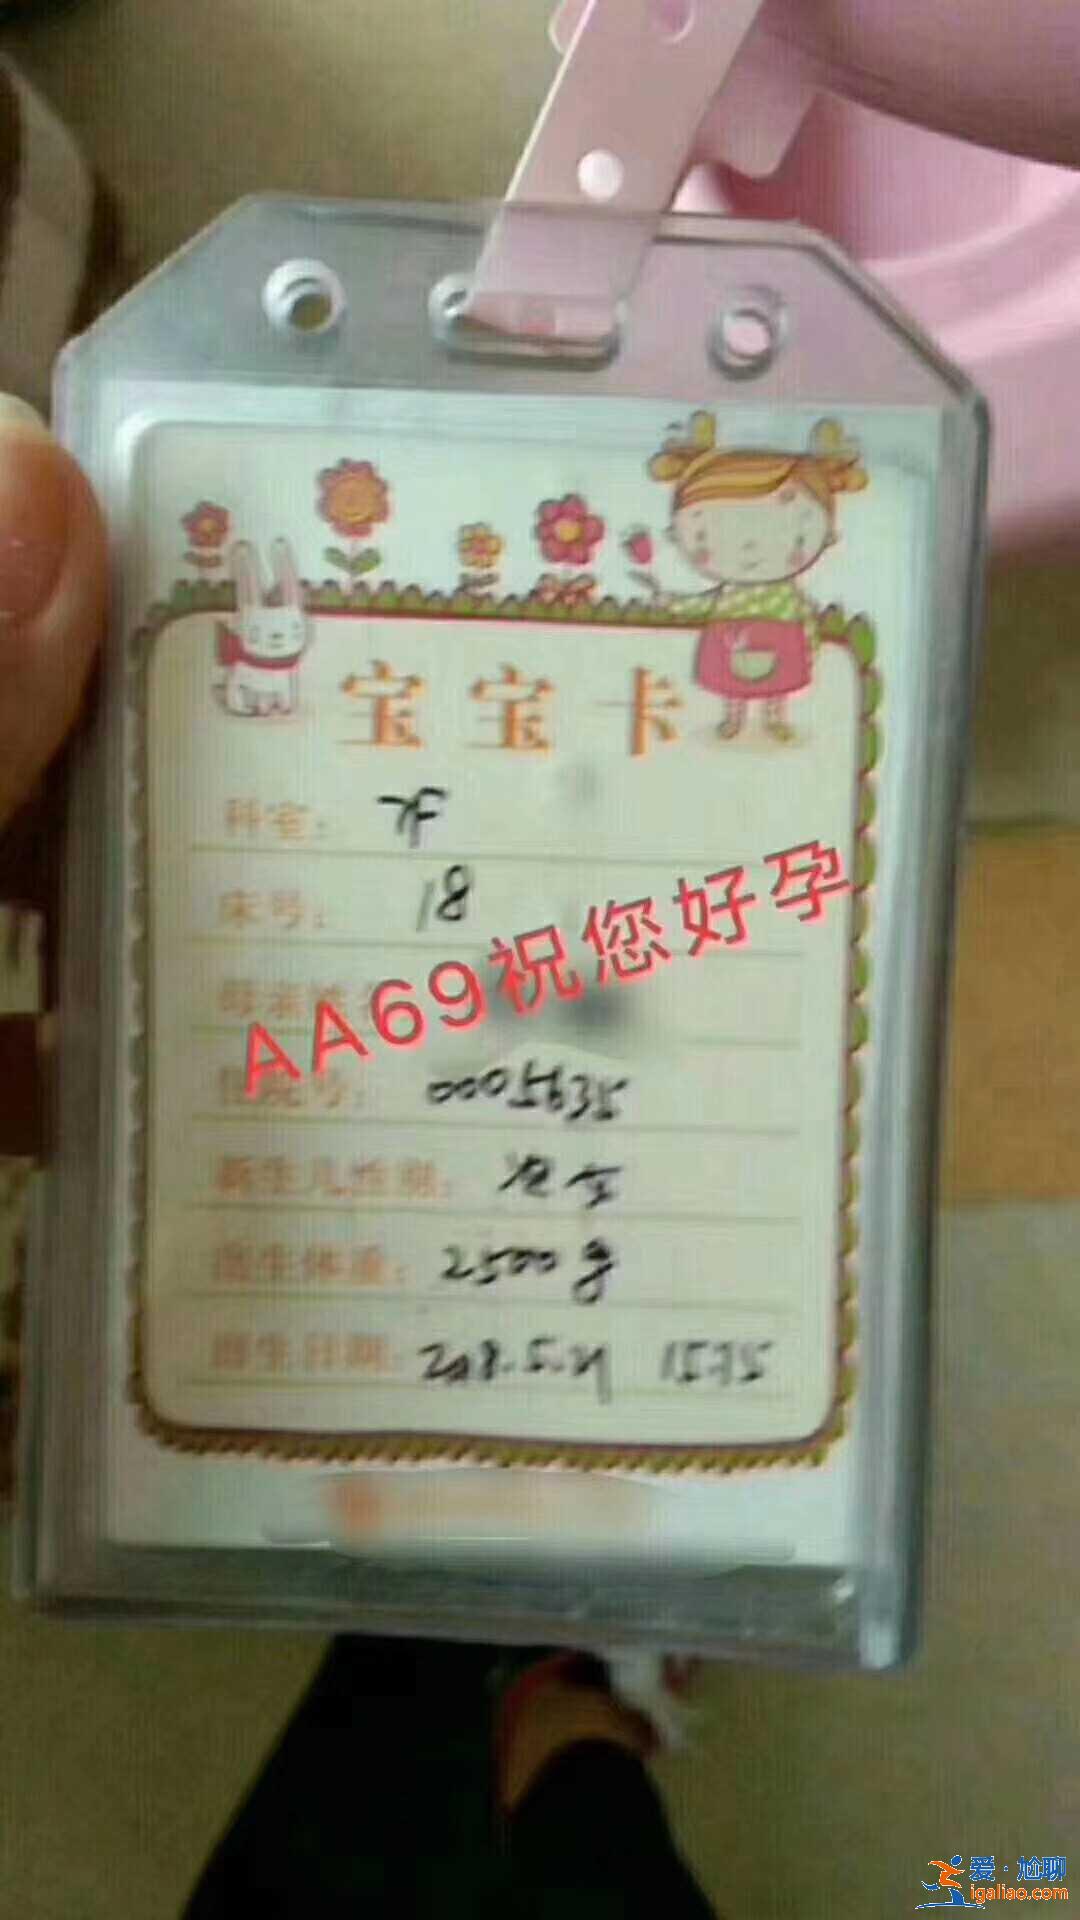 宝宝卡
科室:
床号: 18
AA69祝您好孕
母亲姓名
住院号: 0005635
新生儿性别: 女
出生体重: 2500g
出生日期: 2018.5.21 1575
爱·尬聊
igaliao.com